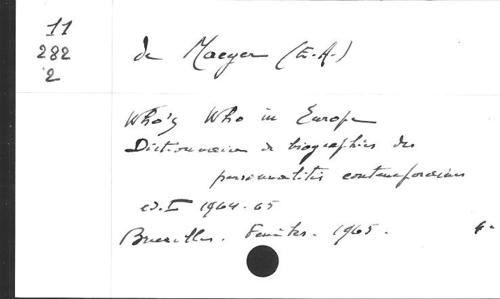 11
282
2
de Maeyer (E.A.)
Who's Who in Europe
Dictionnaire de biographies des
personnalités contemporaines
ed. I 1964-65
Bruxelles. Feniks. 1965.